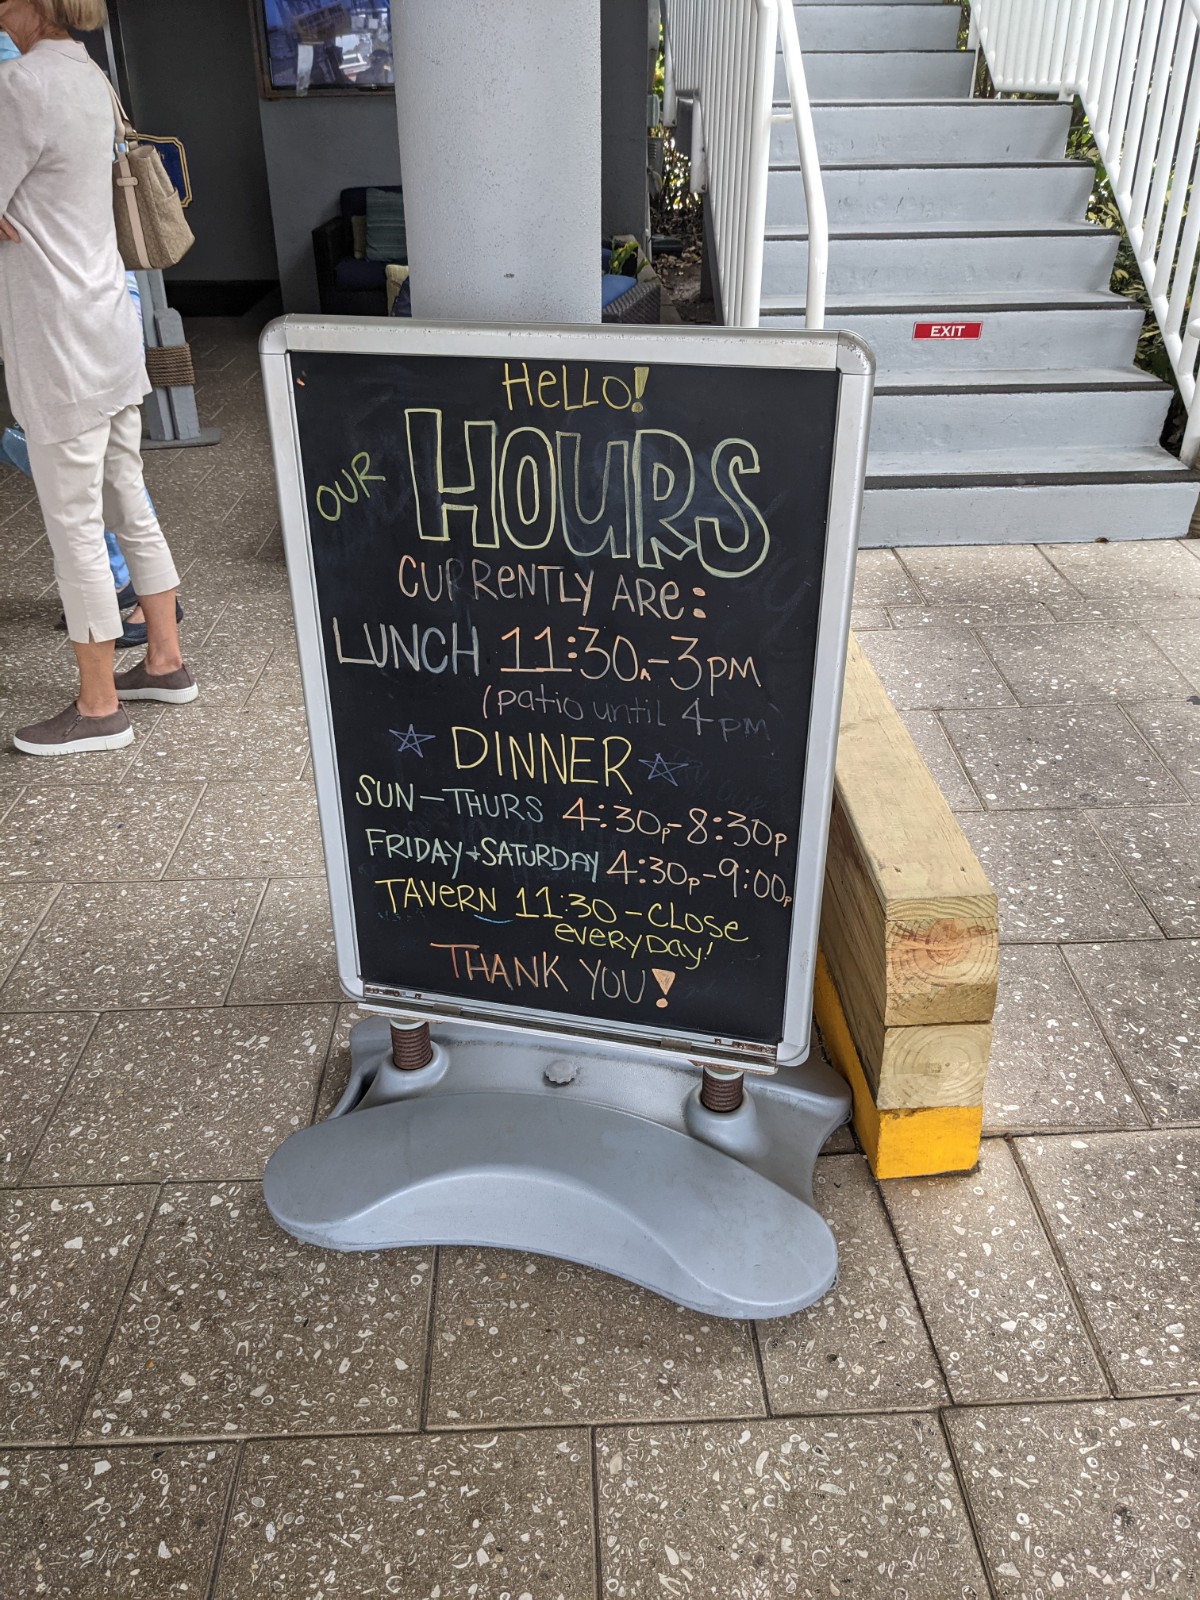 HELLO!
OUR HOURS
CURRENTLY ARE:
LUNCH 11:30A-3PM
(patio until 4pm
DINNER
SUN-THURS 4:30P-8:30P
FRIDAY+SATURDAY 4:30P-9:00P
TAVERN 11:30-CLOSE
EVERYDAY!
THANK YOU!
EXIT